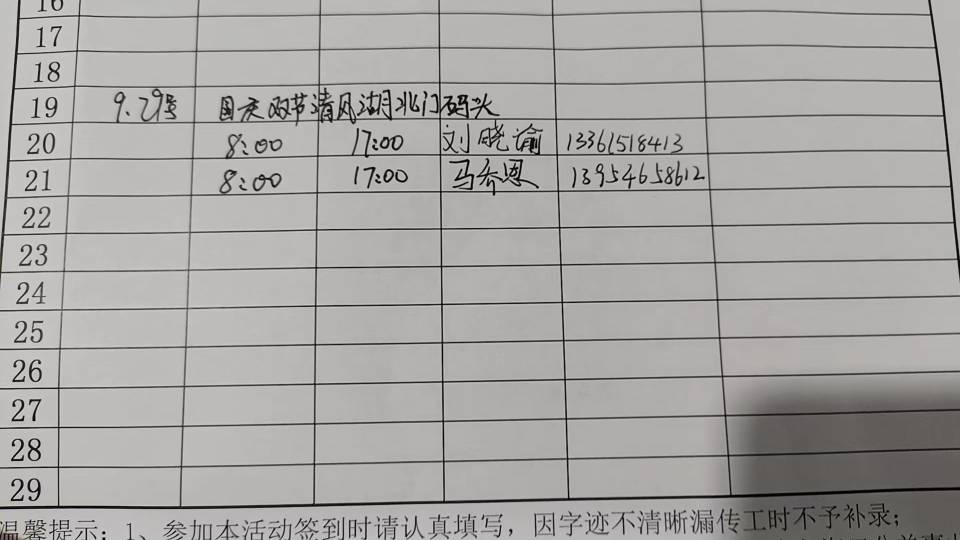 16
17
18
19 9.29号 国庆双节清风湖北门码头
20 8:00 17:00 刘晓谕 13361518413
21 8:00 17:00 马乔恩 13954658612
22
23
24
25
26
27
28
29
温馨提示：1、参加本活动签到时请认真填写，因字迹不清晰漏传工时不予补录；